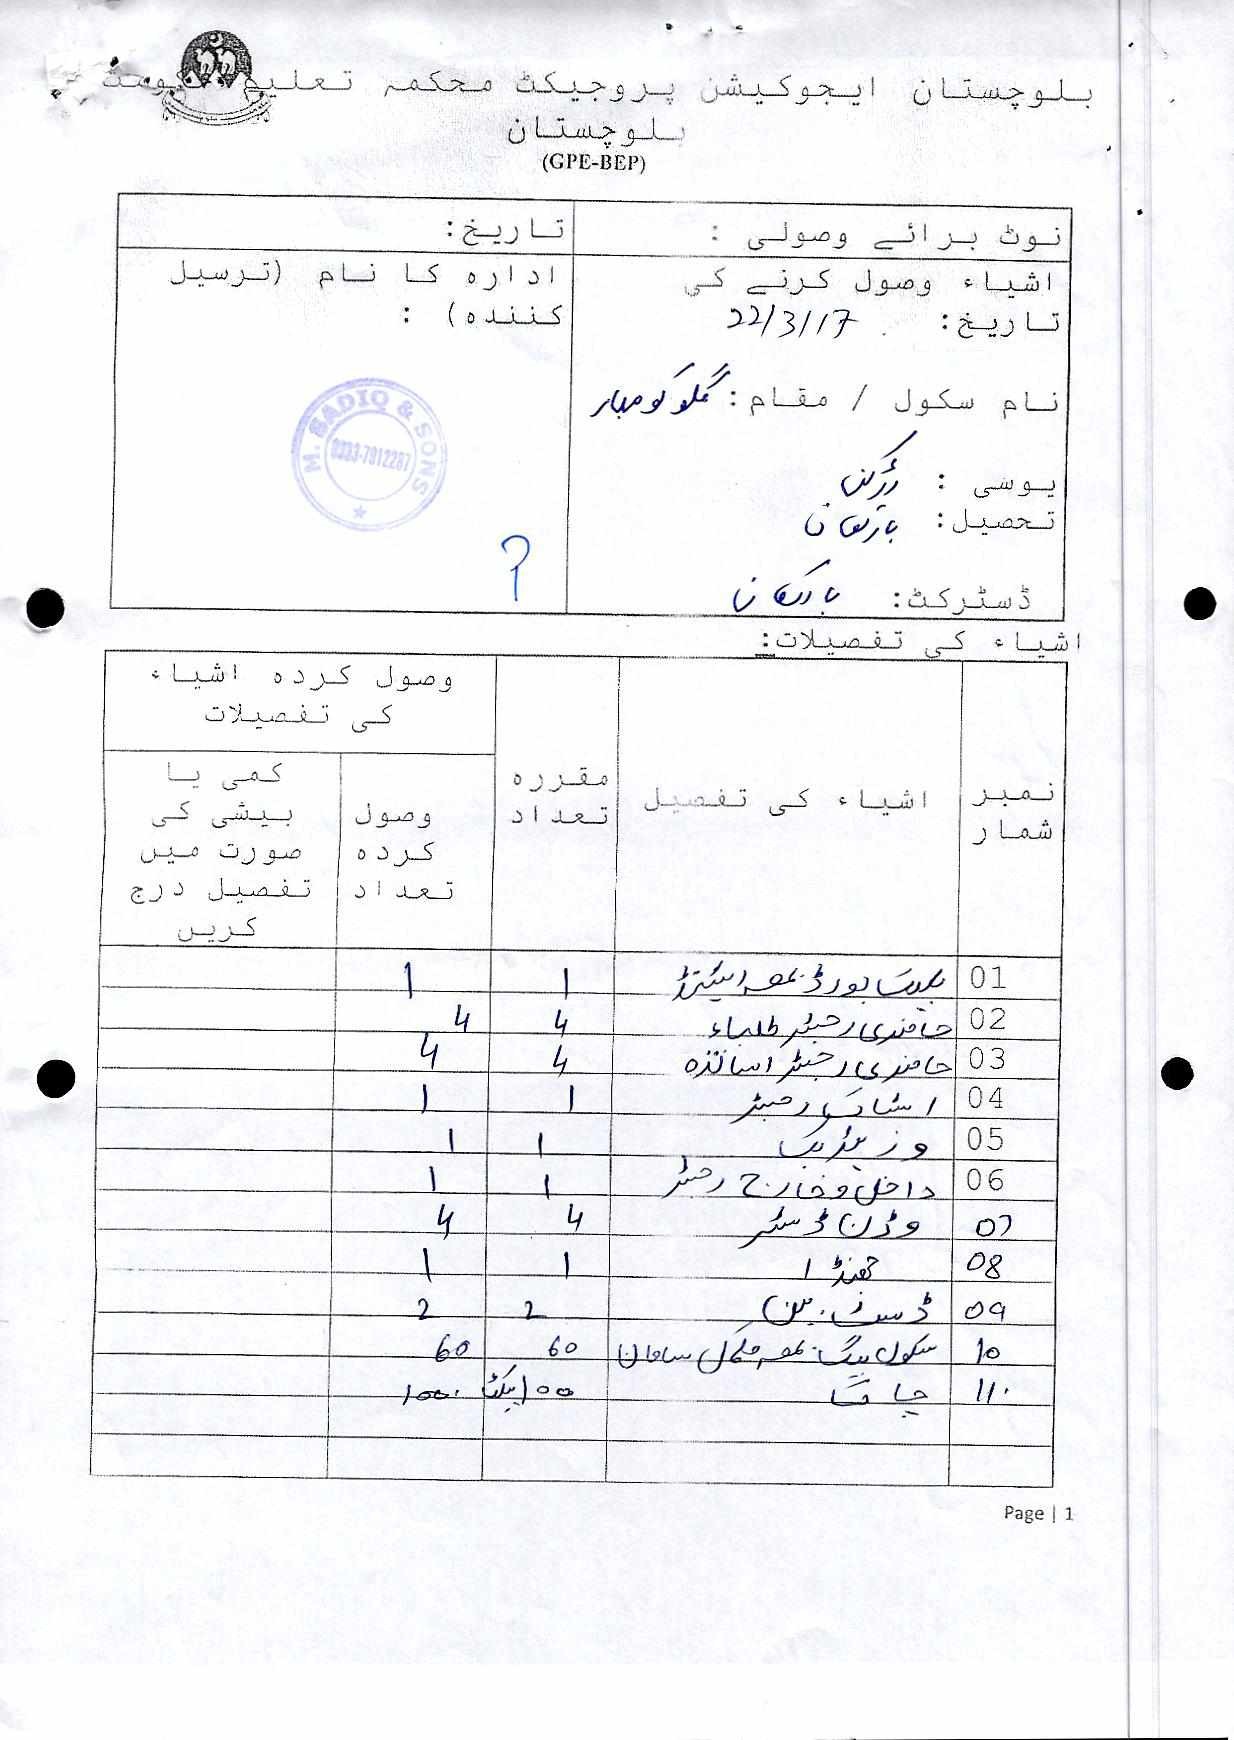 بلوچستان ایجوکیشن پروجیکٹ محکمہ تعلیم حکومت
بلوچستان
(GPE-BEP)
نوٹ برائے وصولی :
تاریخ:
اشیاء وصول کرنے کی
تاریخ: 22/3/17
نام سکول / مقام:
یوسی :
تحصیل: بارکھان
ڈسٹرکٹ: بارکھان
ادارہ کا نام (ترسیل
کنندہ) :
M. SADIQ & SONS
0333-7912287
?
اشیاء کی تفصیلات:
نمبر شمار
اشیاء کی تفصیل
مقررہ تعداد
وصول کردہ اشیاء
کی تفصیلات
وصول کردہ تعداد
کمی یا
بیشی کی
صورت میں
تفصیل درج
کریں
01 بلیک بورڈ بمعہ اسٹینڈ 1 1
02 حاضری رجسٹر طلباء 4 4
03 حاضری رجسٹر اساتذہ 4 4
04 اسٹاک رجسٹر 1 1
05 وزیٹر بک 1 1
06 داخل و خارج رجسٹر 1 1
07 وڈن ڈسٹر 4 4
08 جھنڈا 1 1
09 ڈسٹ بین 2 2
10 سکول بیگ بمعہ مکمل سامان 60 60
11 چاک 100 پیکٹ 100
Page | 1